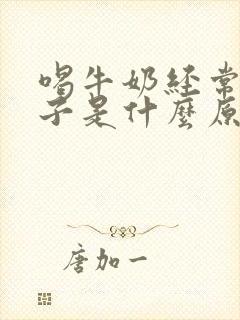 喝牛奶経常
子是什麼原
唐加一